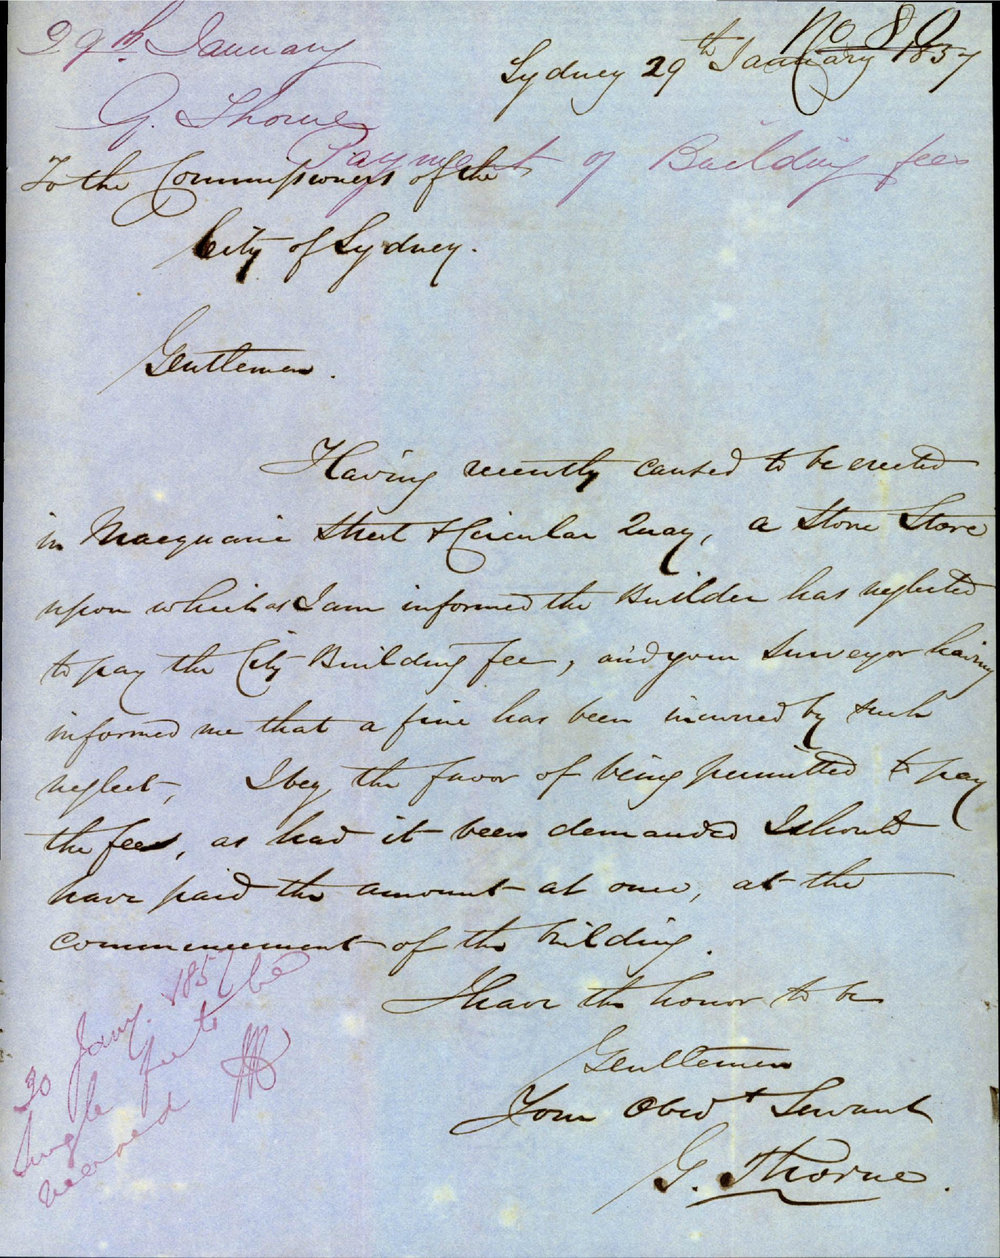 No 80
29th January
Sydney 29th January 1857
G. Thorne
Payment of Building fees
To the Commissioners of the
City of Sydney.
Gentlemen.
Having recently caused to be erected
in Macquarie Street & Circular Quay, a Stone Store
upon which as I am informed the Builder has neglected
to pay the City Building fee, and your Surveyor having
informed me that a fine has been incurred by such
neglect, I beg the favor of being permitted to pay
the fees, as had it been demanded I should
have paid the amount at once, at the
commencement of the building.
I have the honor to be
Gentlemen
Your Obedt Servant
G. Thorne.
30 Jany. 1857
Single fee to be
received